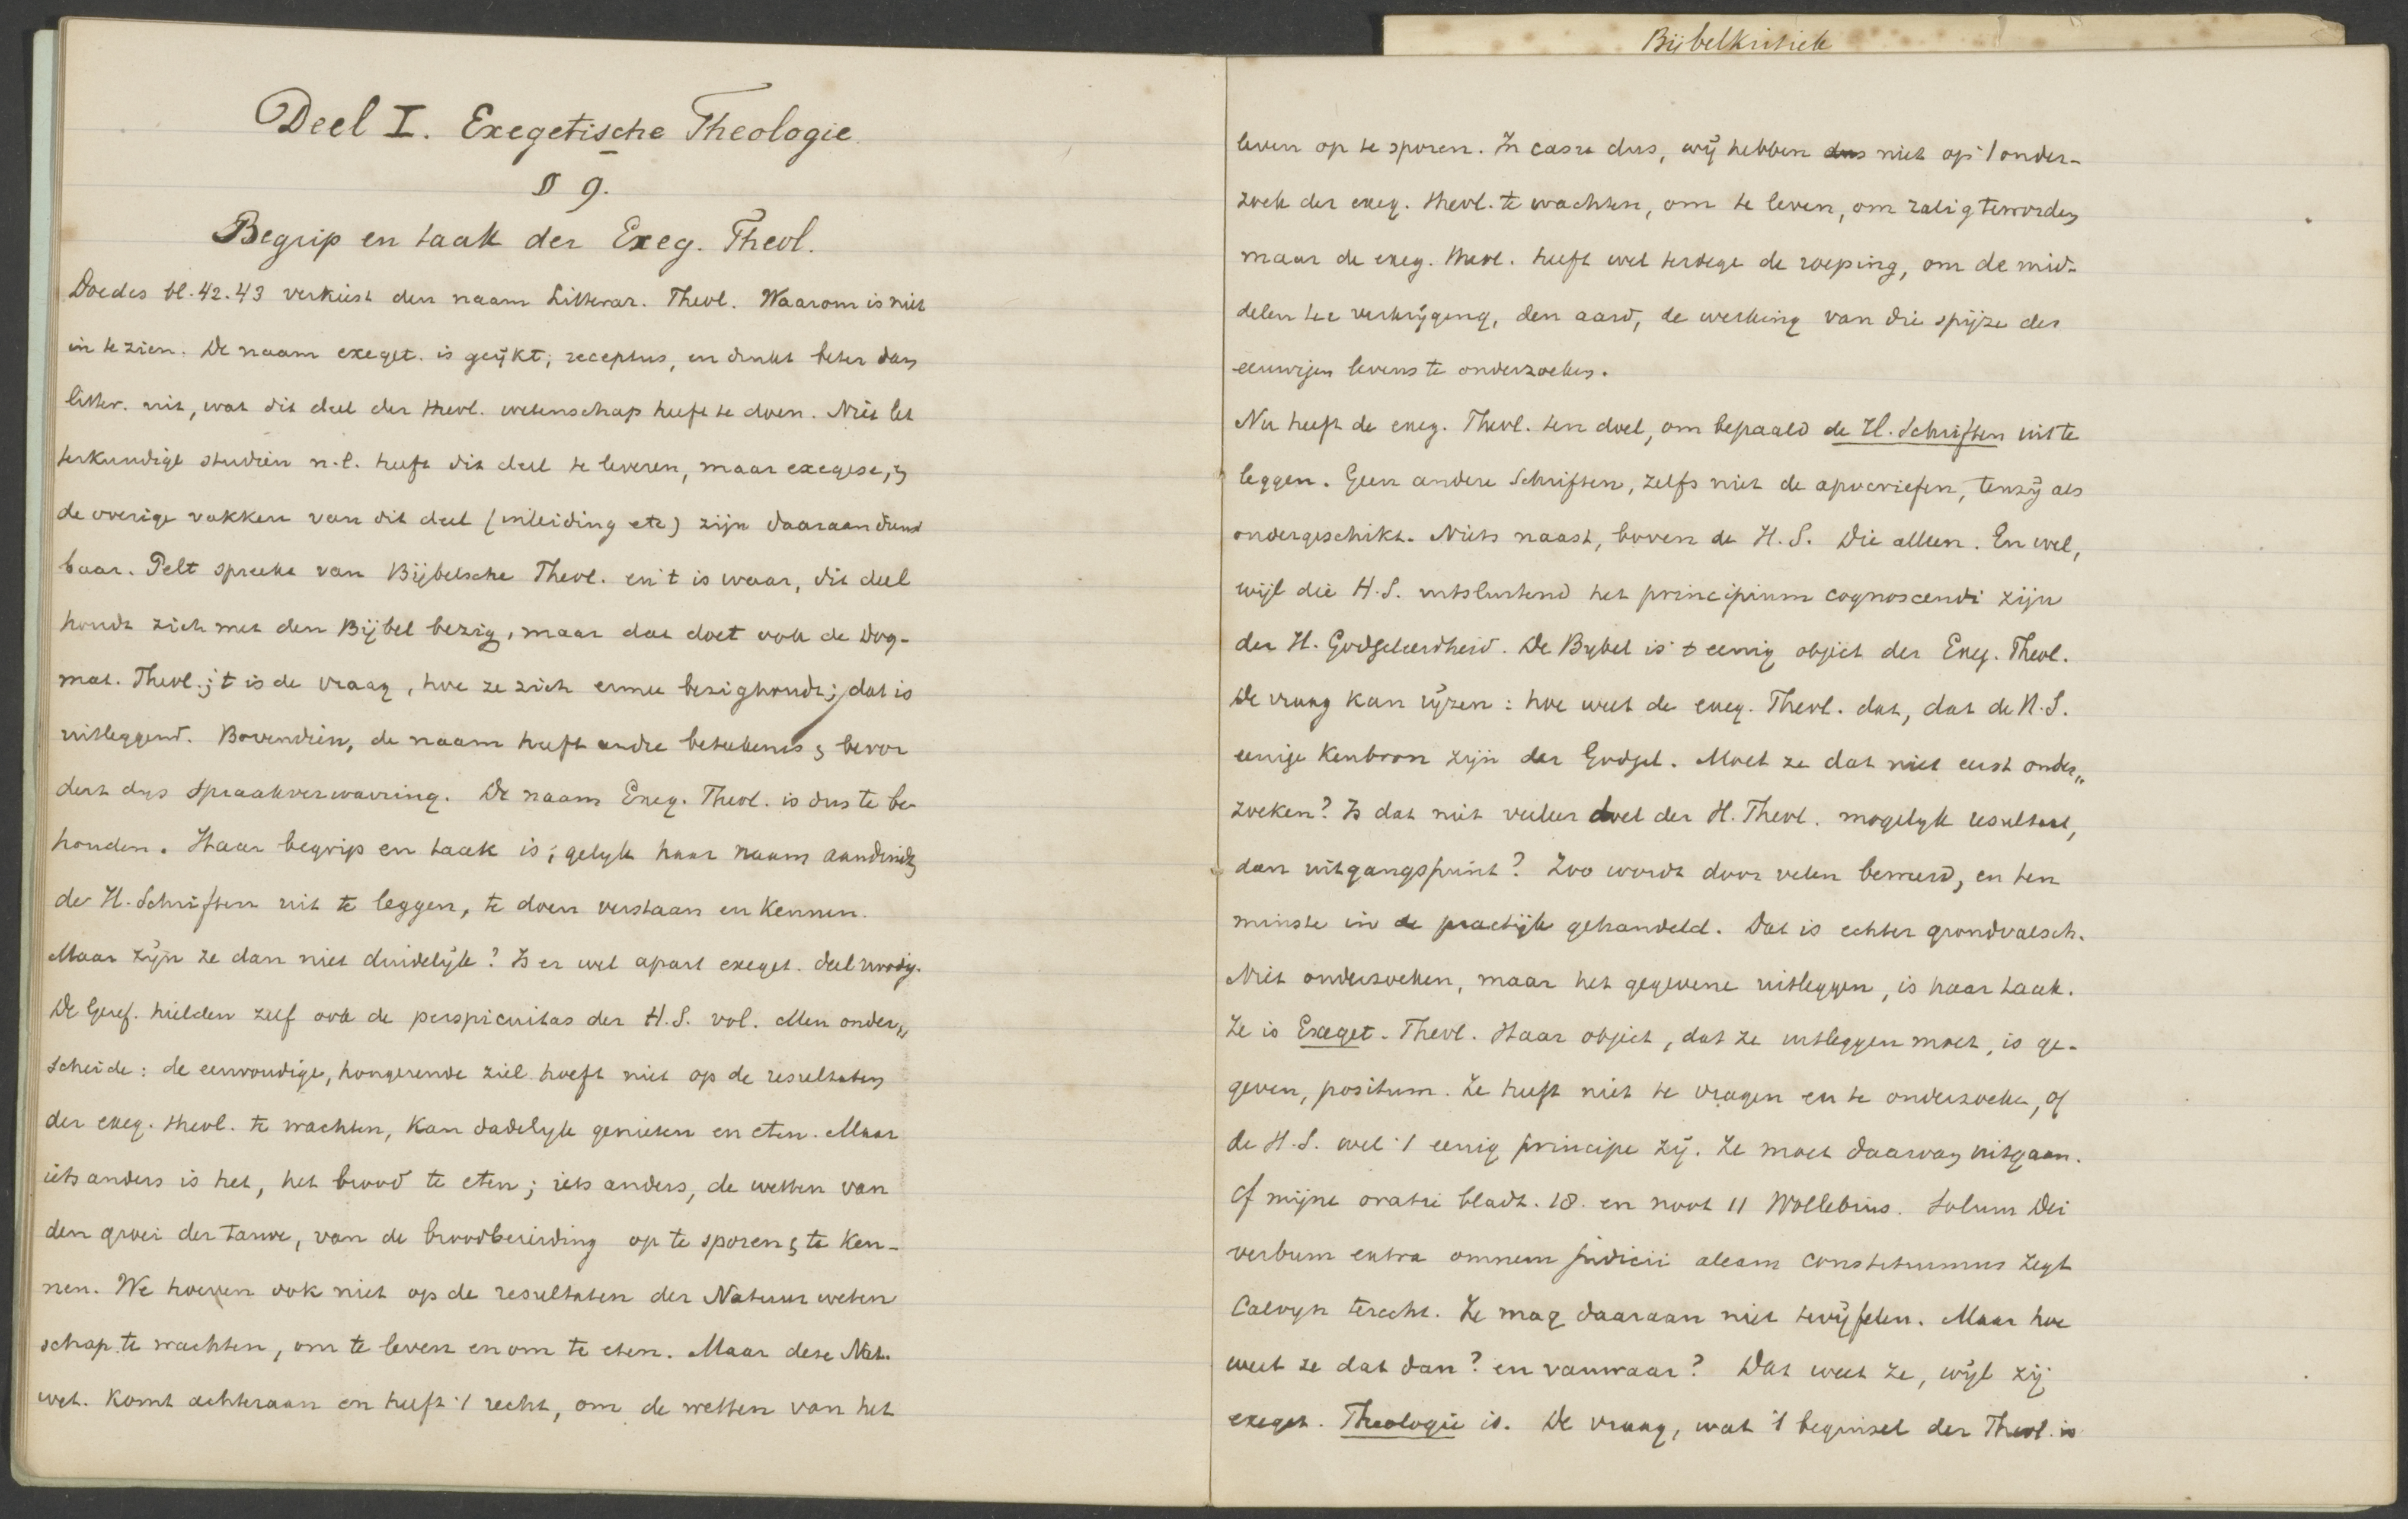 Deel I. Exegetische Theologie.
§ 9.
Begrip en taak der Exeg. Theol.
Doedes bl. 42.43 verkiest den naam Litterar. Theol. Waarom is niet
in te zien. De naam exeget. is geijkt, receptus, en drukt beter dan
litter. uit, wat dit deel der theol. wetenschap heeft te doen. Niet let
terkundige studiën n.l. heeft dit deel te leveren, maar exegese, &
de overige vakken van dit deel (inleiding etc) zijn daaraan dienst
baar. Pelt spreekt van Bijbelsche Theol. en 't is waar, dit deel
houdt zich met den Bijbel bezig, maar dat doet ook de Dog-
mat. Theol.; 't is de vraag, hoe ze zich ermee bezighoudt; dat is
uitleggend. Bovendien, de naam heeft andre beteekenis & bevor
dert dus spraakverwarring. De naam Exeg. Theol. is dus te be-
houden. Haar begrip en taak is, gelijk haar naam aanduidt,
de H. Schriften uit te leggen, te doen verstaan en kennen.
Maar zijn ze dan niet duidelijk? Is er wel apart exeget. deel noodig.
De Geref. hielden zelf ook de perspicuitas der H.S. vol. Men onder,,
scheide: de eenvoudige, hongerende ziel hoeft niet op de resultaten
der exeg. theol. te wachten, kan dadelijk genieten en eten. Maar
iets anders is het, het brood te eten; iets anders, de wetten van
den groei der tarwe, van de broodbereiding op te sporen & te ken-
nen. We hoeven ook niet op de resultaten der Natuurweten
schap te wachten, om te leven en om te eten. Maar deze Nat.
wet. komt achteraan en heeft 't recht, om de wetten van het
Bijbelkritiek
leven op te sporen. In casu dus, wij hebben dus niet op 't onder-
zoek der exeg. theol. te wachten, om te leven, om zalig te worden
maar de exeg. theol. heeft wel terdege de roeping, om de mid-
delen ter verkrijging, den aard, de werking van die spijze des
eeuwigen levens te onderzoeken.
Nu heeft de exeg. Theol. ten doel, om bepaald de H. Schriften uit te
leggen. Geen andere Schriften, zelfs niet de apocriefen, tenzij als
ondergeschikt. Niets naast, boven de H.S. Die alleen. En wel,
wijl die H.S. uitsluitend het principium cognoscendi zijn
der H. Godgeleerdheid. De Bijbel is 't eenig object der Exeg. Theol.
De vraag kan rijzen: hoe weet de exeg. Theol. dat, dat de H.S.
eenige kenbron zijn der Godgel. Moet ze dat niet eerst onder,,
zoeken? Is dat niet veeleer doel der H. Theol. mogelijk resultaat,
dan uitgangspunt? Zoo wordt door velen beweerd, en ten
minste in de practijk gehandeld. Dat is echter grondvalsch.
Niet onderzoeken, maar het gegevene uitleggen, is haar taak.
Ze is Exeget. Theol. Haar object, dat ze uitleggen moet, is ge-
geven, positum. Ze heeft niet te vragen en te onderzoeken, of
de H.S. wel 't eenig principe zij. Ze moet daarvan uitgaan.
Cf mijne oratie bladz. 18. en noot 11 Wollebius. Solum Dei
verbum extra omnem judicii aleam constituimus zegt
Calvijn terecht. Ze mag daaraan niet twijfelen. Maar hoe
weet ze dat dan? en vanwaar? Dat weet ze, wijl zij
exeget. Theologie is. De vraag, wat 't beginsel der Theol. is